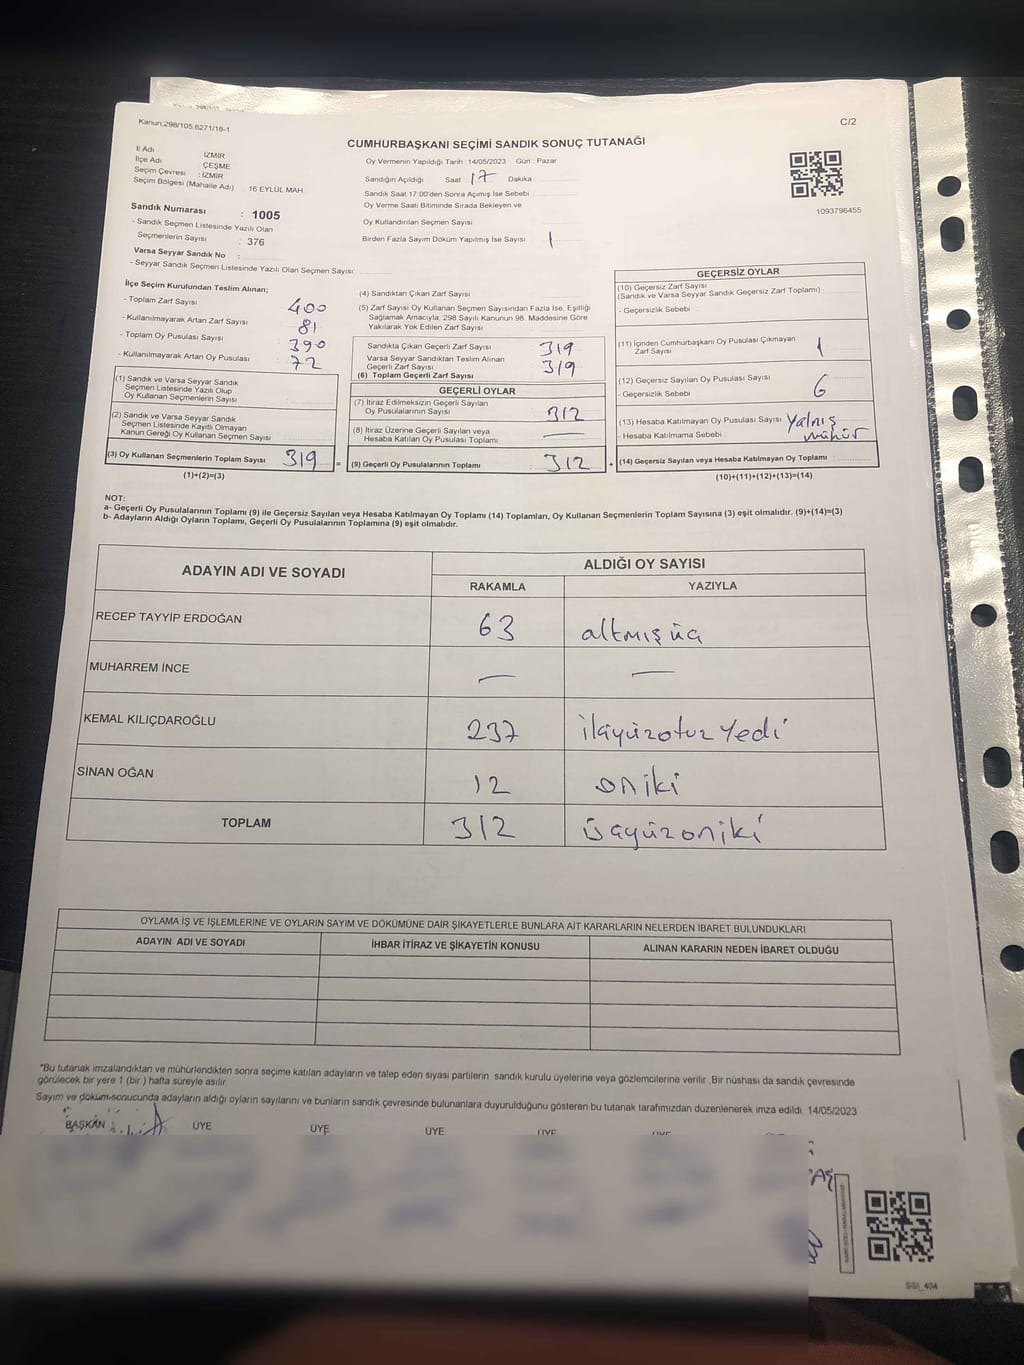 Kanun:298/105,6271/18-1
C/2
CUMHURBAŞKANI SEÇİMİ SANDIK SONUÇ TUTANAĞI
İl Adı İZMİR
İlçe Adı ÇEŞME
Seçim Çevresi : İZMİR
Seçim Bölgesi (Mahalle Adı) : 16 EYLÜL MAH.
Oy Vermenin Yapıldığı Tarih : 14/05/2023 Gün : Pazar
Sandığın Açıldığı Saat 17 Dakika :
Sandık Saat 17:00'den Sonra Açımış İse Sebebi
Oy Verme Saati Bitiminde Sırada Bekleyen ve
Oy Kullandırılan Seçmen Sayısı
Birden Fazla Sayım Döküm Yapılmış İse Sayısı 1
1093796455
Sandık Numarası : 1005
- Sandık Seçmen Listesinde Yazılı Olan
Seçmenlerin Sayısı : 376
Varsa Seyyar Sandık No :
- Seyyar Sandık Seçmen Listesinde Yazılı Olan Seçmen Sayısı:
İlçe Seçim Kurulundan Teslim Alınan;
- Toplam Zarf Sayısı 400
- Kullanılmayarak Artan Zarf Sayısı 81
- Toplam Oy Pusulası Sayısı 390
- Kullanılmayarak Artan Oy Pusulası 72
(1) Sandık ve Varsa Seyyar Sandık
Seçmen Listesinde Yazılı Olup
Oy Kullanan Seçmenlerin Sayısı
(2) Sandık ve Varsa Seyyar Sandık
Seçmen Listesinde Kayıtlı Olmayan
Kanun Gereği Oy Kullanan Seçmen Sayısı
(3) Oy Kullanan Seçmenlerin Toplam Sayısı 319 =
(1)+(2)=(3)
(4) Sandıktan Çıkan Zarf Sayısı
(5) Zarf Sayısı Oy Kullanan Seçmen Sayısından Fazla İse, Eşitliği
Sağlamak Amacıyla; 298 Sayılı Kanunun 98. Maddesine Göre
Yakılarak Yok Edilen Zarf Sayısı
Sandıkta Çıkan Geçerli Zarf Sayısı 319
Varsa Seyyar Sandıktan Teslim Alınan
Geçerli Zarf Sayısı 319
(6) Toplam Geçerli Zarf Sayısı
GEÇERLİ OYLAR
(7) İtiraz Edilmeksizin Geçerli Sayılan
Oy Pusulalarının Sayısı 312
(8) İtiraz Üzerine Geçerli Sayılan veya
Hesaba Katılan Oy Pusulası Toplamı —
(9) Geçerli Oy Pusulalarının Toplamı 312 +
GEÇERSİZ OYLAR
(10) Geçersiz Zarf Sayısı
(Sandık ve Varsa Seyyar Sandık Geçersiz Zarf Toplamı)
- Geçersizlik Sebebi :
(11) İçinden Cumhurbaşkanı Oy Pusulası Çıkmayan
Zarf Sayısı 1
(12) Geçersiz Sayılan Oy Pusulası Sayısı
- Geçersizlik Sebebi 6
(13) Hesaba Katılmayan Oy Pusulası Sayısı Yalnış
- Hesaba Katılmama Sebebi : mühür
(14) Geçersiz Sayılan veya Hesaba Katılmayan Oy Toplamı
(10)+(11)+(12)+(13)=(14)
NOT:
a- Geçerli Oy Pusulalarının Toplamı (9) ile Geçersiz Sayılan veya Hesaba Katılmayan Oy Toplamı (14) Toplamları, Oy Kullanan Seçmenlerin Toplam Sayısına (3) eşit olmalıdır. (9)+(14)=(3)
b- Adayların Aldığı Oyların Toplamı, Geçerli Oy Pusulalarının Toplamına (9) eşit olmalıdır.
ADAYIN ADI VE SOYADI ALDIĞI OY SAYISI
RAKAMLA YAZIYLA
RECEP TAYYİP ERDOĞAN 63 altmışüç
MUHARREM İNCE — —
KEMAL KILIÇDAROĞLU 237 ikiyüzotuzyedi
SİNAN OĞAN 12 oniki
TOPLAM 312 üçyüzoniki
OYLAMA İŞ VE İŞLEMLERİNE VE OYLARIN SAYIM VE DÖKÜMÜNE DAİR ŞİKAYETLERLE BUNLARA AİT KARARLARIN NELERDEN İBARET BULUNDUKLARI
ADAYIN ADI VE SOYADI İHBAR İTİRAZ VE ŞİKAYETİN KONUSU ALINAN KARARIN NEDEN İBARET OLDUĞU
"Bu tutanak imzalandıktan ve mühürlendikten sonra seçime katılan adayların ve talep eden siyasi partilerin sandık kurulu üyelerine veya gözlemcilerine verilir. Bir nüshası da sandık çevresinde
görülecek bir yere 1 (bir ) hafta süreyle asılır.
Sayım ve döküm sonucunda adayların aldığı oyların sayılarını ve bunların sandık çevresinde bulunanlara duyurulduğunu gösteren bu tutanak tarafımızdan düzenlenerek imza edildi. 14/05/2023
BAŞKAN ÜYE ÜYE ÜYE ÜYE
SSI_404